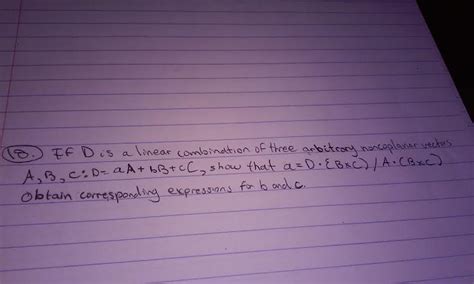 18. If D is a linear combination of three arbitrary noncoplanar vectors
A, B, C: D = aA + bB + cC, show that a = D · (B×C) / A · (B×C)
Obtain corresponding expressions for b and c.